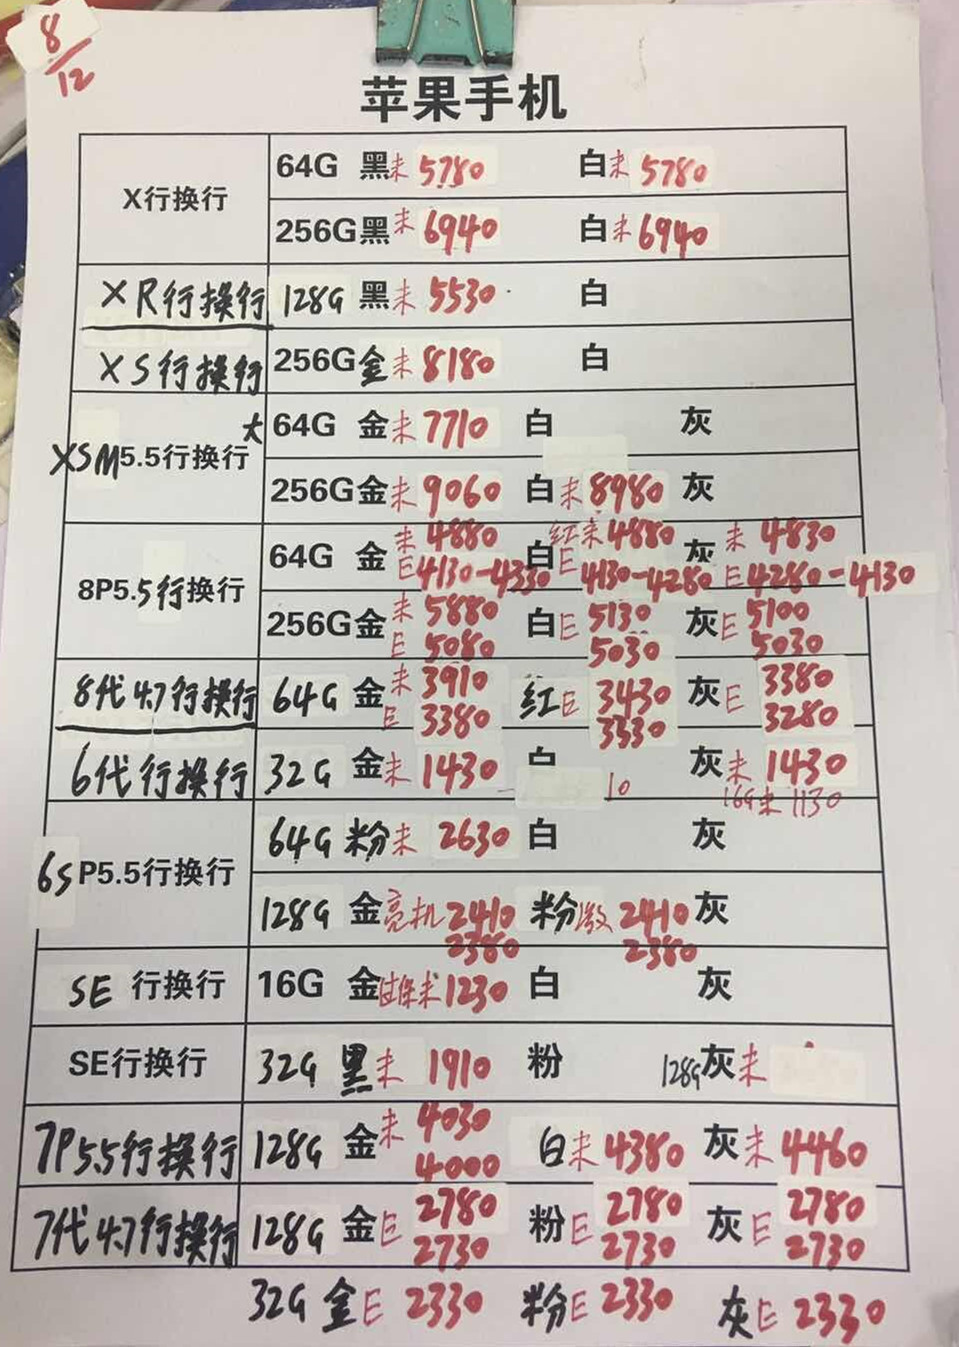 8/12
苹果手机
X行换行
64G 黑未 5780 白未 5780
256G黑未 6940 白未 6940
XR行换行 128G 黑未 5530 白
XS行换行 256G金未 8180 白
XSM5.5行换行 大
64G 金未 7710 白 灰
256G金未 9060 白未 8980 灰
8P5.5行换行
64G 金 未 4880 白 红未 4880 灰 未 4830
E 4130-4330 E 4130-4280 E 4280-4130
256G金 未 5880 白E 5130 灰E 5100
E 5080 5030 5030
8代4.7行换行 64G 金 未 3910 红E 3430 灰E 3380
E 3380 3330 3280
6代行换行 32G 金未 1430 白 10 灰未 1430
16G未 1130
6SP5.5行换行
64G 粉未 2630 白 灰
128G 金亮机 2410 粉激 2410 灰
2380 2380
SE 行换行 16G 金过保未 1230 白 灰
SE行换行 32G 黑未 1910 粉 128G灰未
7P5.5行换行 128G 金未 4030 白未 4380 灰未 4460
4000
7代4.7行换行 128G 金E 2780 粉E 2780 灰E 2780
2730 2730 2730
32G 金E 2330 粉E 2330 灰E 2330